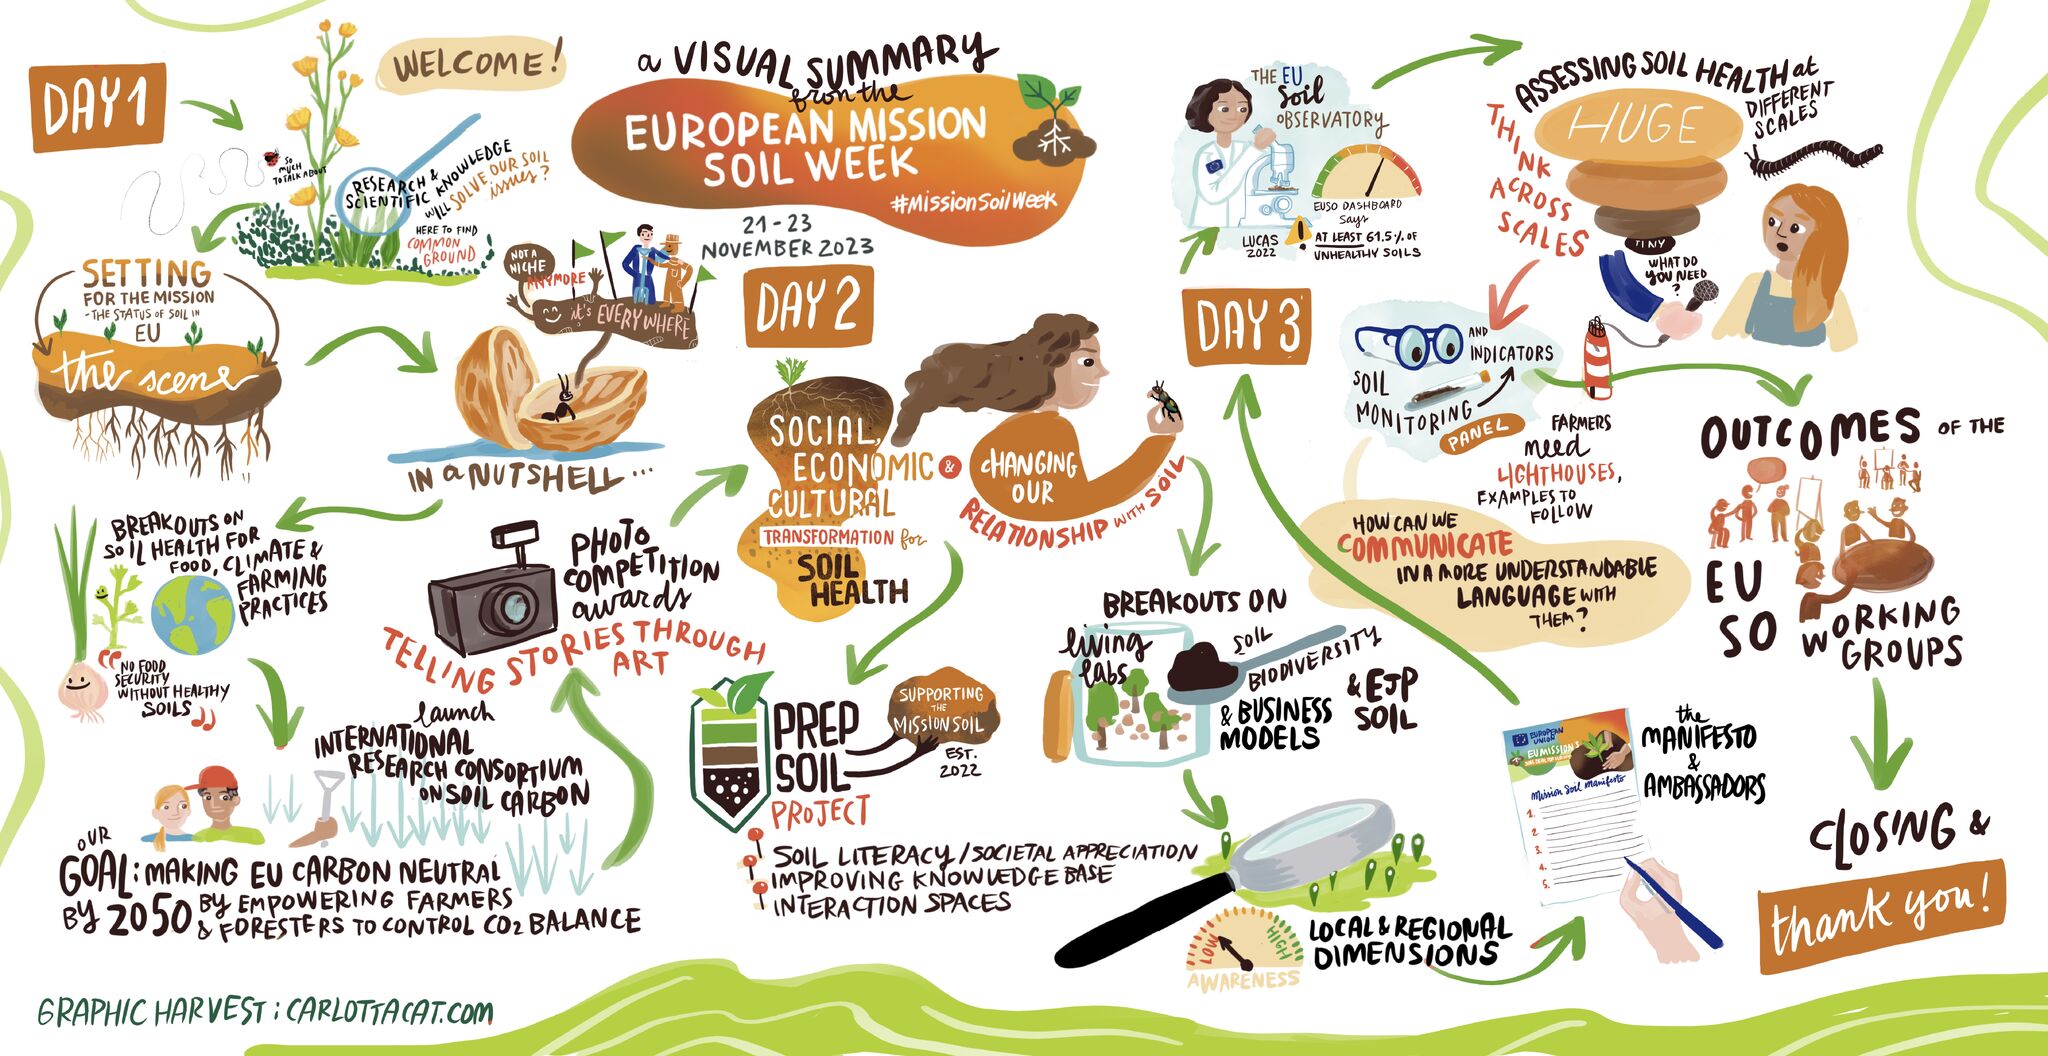 a VISUAL SUMMARY
from the
EUROPEAN MISSION
SOIL WEEK
#MissionSoilWeek
21-23
NOVEMBER 2023
DAY 1
WELCOME!
SO
MUCH
TO TALK ABOUT
RESEARCH &
SCIENTIFIC KNOWLEDGE
WILL SOLVE OUR SOIL
issues?
HERE TO FIND
COMMON
GROUND
SETTING
FOR THE MISSION
-THE STATUS of SOIL IN
EU
the scene
NOT A
NICHE
ANYMORE
it's EVERYWHERE
IN a NUTSHELL...
BREAKOUTS ON
SOIL HEALTH FOR
FOOD, CLIMATE &
FARMING
PRACTICES
"NO FOOD
SECURITY
WITHOUT HEALTHY
SOILS"
launch
INTERNATIONAL
RESEARCH CONSORTIUM
ON SOIL CARBON
OUR
GOAL: MAKING EU CARBON NEUTRAL
BY 2050 BY EMPOWERING FARMERS
& FORESTERS TO CONTROL CO2 BALANCE
PHOTO
COMPETITION
awards
TELLING STORIES THROUGH
ART
DAY 2
SOCIAL,
ECONOMIC &
CULTURAL
TRANSFORMATION for
SOIL
HEALTH
CHANGING
OUR
RELATIONSHIP WITH SOIL
PREP
SOIL
PROJECT
SUPPORTING
THE
MISSION SOIL
EST.
2022
SOIL LITERACY/SOCIETAL APPRECIATION
IMPROVING KNOWLEDGE BASE
INTERACTION SPACES
BREAKOUTS ON
living
labs
SOIL
BIODIVERSITY
& BUSINESS
MODELS
& EJP
SOIL
LOW
HIGH
AWARENESS
LOCAL & REGIONAL
DIMENSIONS
EUROPEAN
UNION
EU MISSIONS
Mission Soil Manifesto
1.
2.
3.
4.
5.
the
MANIFESTO
&
AMBASSADORS
DAY 3
THE EU
Soil
OBSERVATORY
LUCAS
2022
!
EUSO DASHBOARD
Says
AT LEAST 61.5% OF
UNHEALTHY SOILS
ASSESSING SOIL HEALTH at
DIFFERENT
SCALES
THINK
ACROSS
SCALES
HUGE
TINY
WHAT DO
YOU NEED
?
SOIL
MONITORING
AND
INDICATORS
PANEL
FARMERS
need
LIGHTHOUSES,
EXAMPLES TO
FOLLOW
HOW CAN WE
COMMUNICATE
IN A MORE UNDERSTANDABLE
LANGUAGE WITH
THEM?
OUTCOMES OF THE
EU
SO
WORKING
GROUPS
CLOSING &
thank you!
GRAPHIC HARVEST: CARLOTTACAT.COM